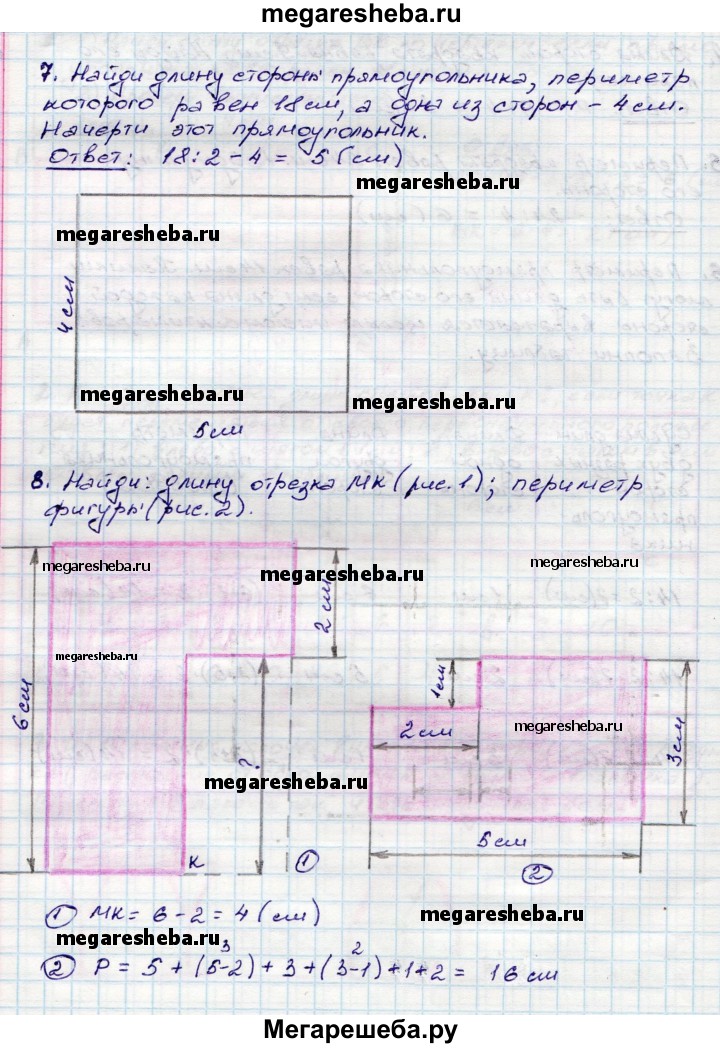 megaresheba.ru
7. Найди длину стороны прямоугольника, периметр
которого равен 18 см, а одна из сторон – 4 см.
Начерти этот прямоугольник.
Ответ: 18 : 2 – 4 = 5 (см)
megaresheba.ru
megaresheba.ru
4 см
megaresheba.ru
megaresheba.ru
5 см
8. Найди: длину отрезка МК (рис. 1); периметр
фигуры (рис. 2).
megaresheba.ru
megaresheba.ru
megaresheba.ru
2 см
megaresheba.ru
6 см
1 см
2 см
megaresheba.ru
3 см
?
megaresheba.ru
5 см
К
1
2
1 МК = 6 – 2 = 4 (см)
megaresheba.ru
megaresheba.ru
3 2
2 Р = 5 + (5-2) + 3 + (3-1) + 1 + 2 = 16 см
megaresheba.ru
Мегарешеба.ру